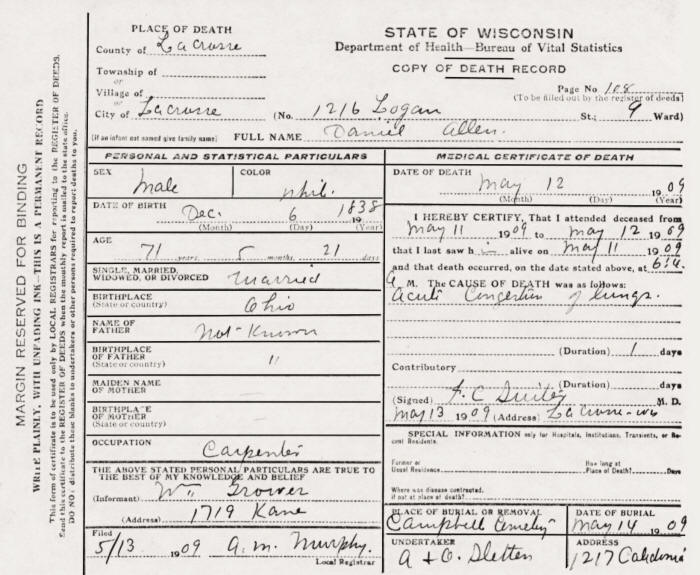 MARGIN RESERVED FOR BINDING
WRITE PLAINLY, WITH UNFADING INK—THIS IS A PERMANENT RECORD
This form of certificate is to be used only by LOCAL REGISTRARS for reporting to the REGISTER OF DEEDS.
Send this certificate to the REGISTER OF DEEDS when the monthly report is mailed to the state office.
DO NOT distribute these blanks to undertakers or other persons required to report deaths to you.
PLACE OF DEATH
County of La Crosse
Township of
or
Village of
or
City of LaCrosse
STATE OF WISCONSIN
Department of Health—Bureau of Vital Statistics
COPY OF DEATH RECORD
Page No 108
(To be filled out by the register of deeds)
(No. 1216 Logan St.; 9 Ward)
(If an infant not named give family name) FULL NAME Daniel Allen.
PERSONAL AND STATISTICAL PARTICULARS
SEX Male
COLOR
DATE OF BIRTH Dec. 6 1838
(Month) (Day) (Year)
AGE
71 years, 5 months, 21 days
SINGLE, MARRIED,
WIDOWED, OR DIVORCED Married
BIRTHPLACE
(State or country) Ohio
NAME OF
FATHER Not Known
BIRTHPLACE
OF FATHER "
(State or country)
MAIDEN NAME
OF MOTHER
BIRTHPLACE
OF MOTHER
(State or country)
OCCUPATION
Carpenter
THE ABOVE STATED PERSONAL PARTICULARS ARE TRUE TO
THE BEST OF MY KNOWLEDGE AND BELIEF
(Informant) Wm Grower
(Address) 1719 Kane
Filed
5/13 1909 A. M. Murphy.
Local Registrar
MEDICAL CERTIFICATE OF DEATH
DATE OF DEATH May 12 1909
(Month) (Day) (Year)
I HEREBY CERTIFY, That I attended deceased from
May 11 1909 to May 12 1909
that I last saw h i— alive on May 11 1909
and that death occurred, on the date stated above, at
A M. The CAUSE OF DEATH was as follows:
Acute Congestion of lungs.
(Duration) 1 days
Contributory
(Duration) days
(Signed) F. C. Suiter M. D.
May 13 1909 (Address) La Crosse - Wis
SPECIAL INFORMATION only for Hospitals, Institutions, Transients, or Recent Residents.
Former or
Usual Residence
How long at
Place of Death? Days
Where was disease contracted,
if not at place of death?
PLACE OF BURIAL OR REMOVAL
Campbell Cemetery
DATE OF BURIAL
May 14 1909
UNDERTAKER
A + O. Sletten
ADDRESS
1217 Caledonia